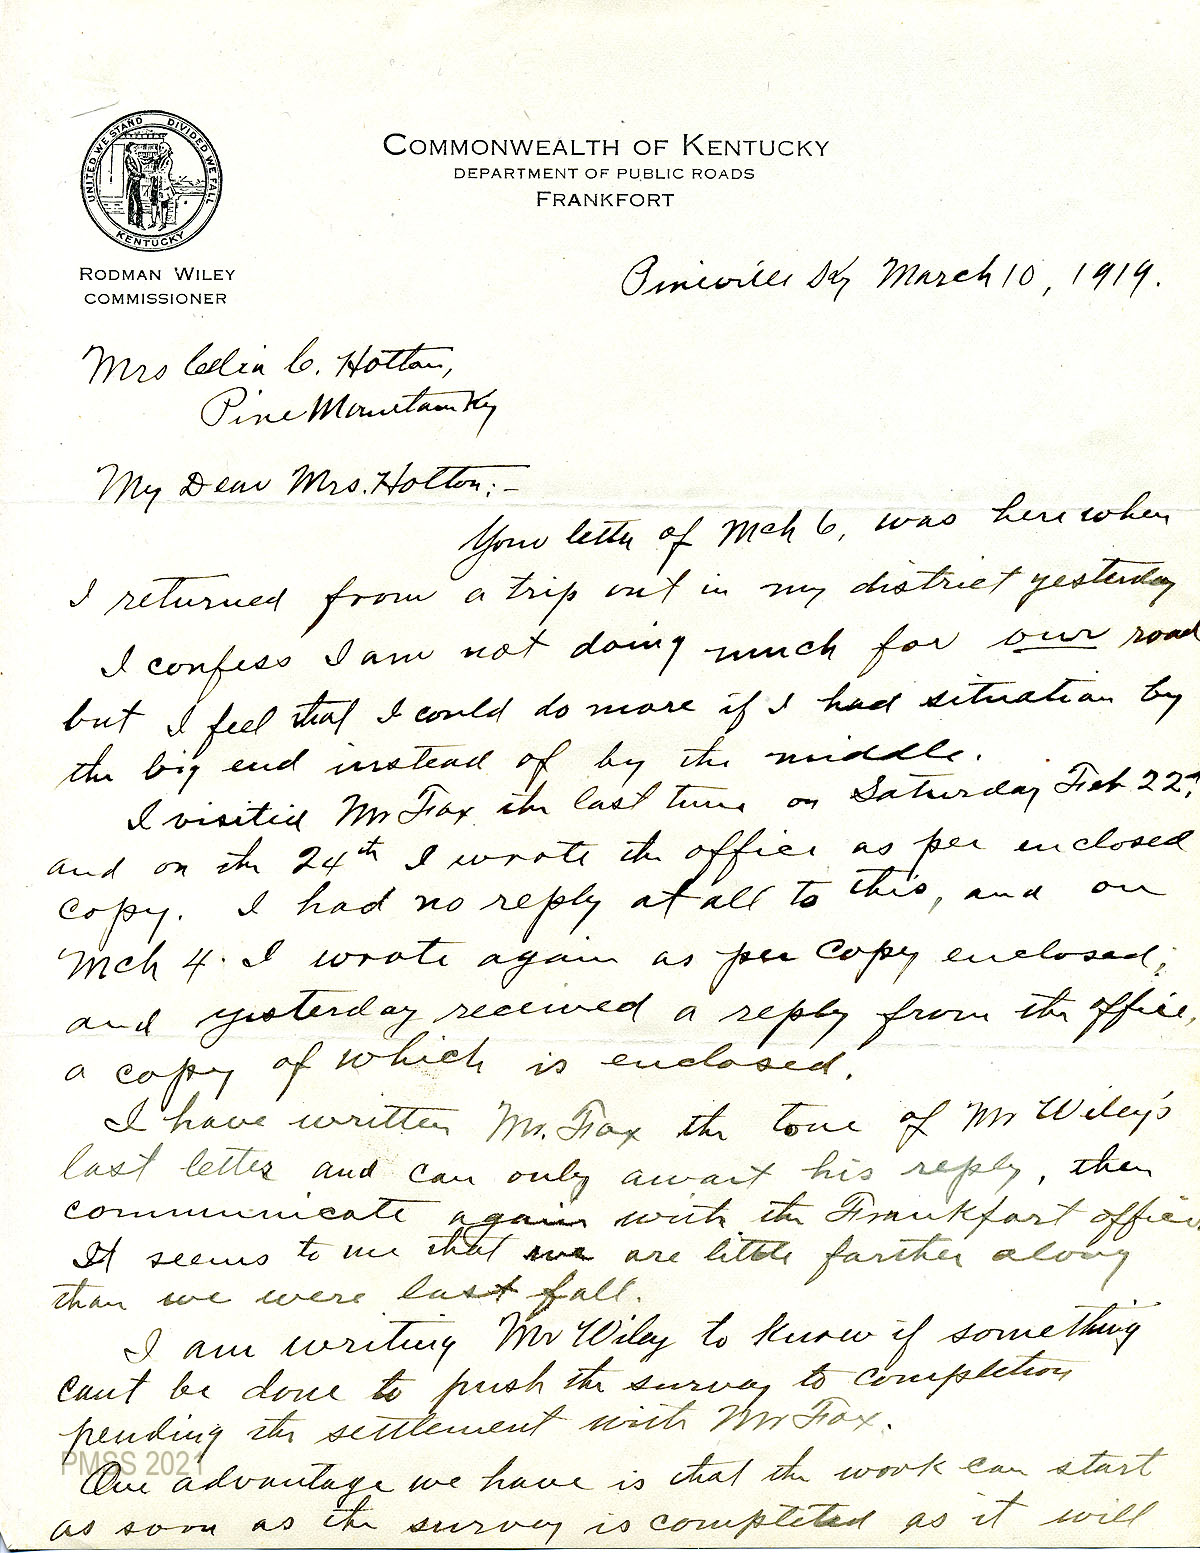 UNITED WE STAND DIVIDED WE FALL
KENTUCKY
COMMONWEALTH OF KENTUCKY
DEPARTMENT OF PUBLIC ROADS
FRANKFORT
RODMAN WILEY
COMMISSIONER
Pineville Ky March 10, 1919.
Mrs Celia C. Holton,
Pine Mountain Ky
My Dear Mrs. Holton:-
Your letter of Mch 6, was here when
I returned from a trip out in my district yesterday
I confess I am not doing much for our road
but I feel that I could do more if I had situation by
the big end instead of by the middle.
I visited Mr Fox the last time on Saturday Feb 22nd,
and on the 24th I wrote the office as per enclosed
copy. I had no reply at all to this, and on
Mch 4. I wrote again as per copy enclosed;
and yesterday received a reply from the office,
a copy of which is enclosed.
I have written Mr. Fox the tone of Mr Wiley's
last letter and can only await his reply, then
communicate again with the Frankfort office.
It seems to me that we are little farther along
than we were last fall.
I am writing Mr Wiley to know if something
cant be done to push the survey to completion
pending the settlement with Mr Fox.
PMSS 2021
One advantage we have is that the work can start
as soon as the survey is completed as it will